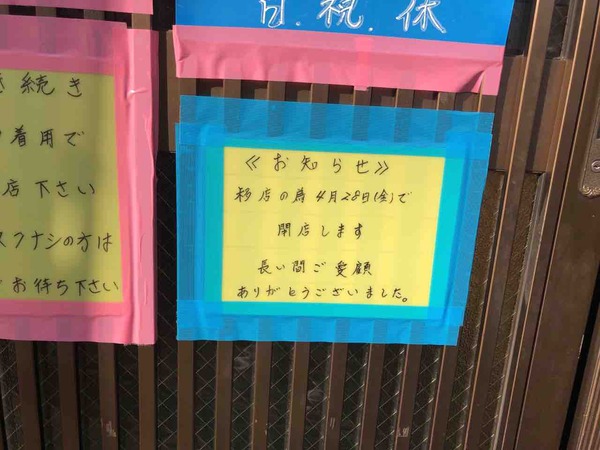 日.祝.休
続き
着用で
店下さい
スクナシの方は
お待ち下さい
≪お知らせ≫
移店の為4月28日(金)で
閉店します
長い間ご愛顧
ありがとうございました。